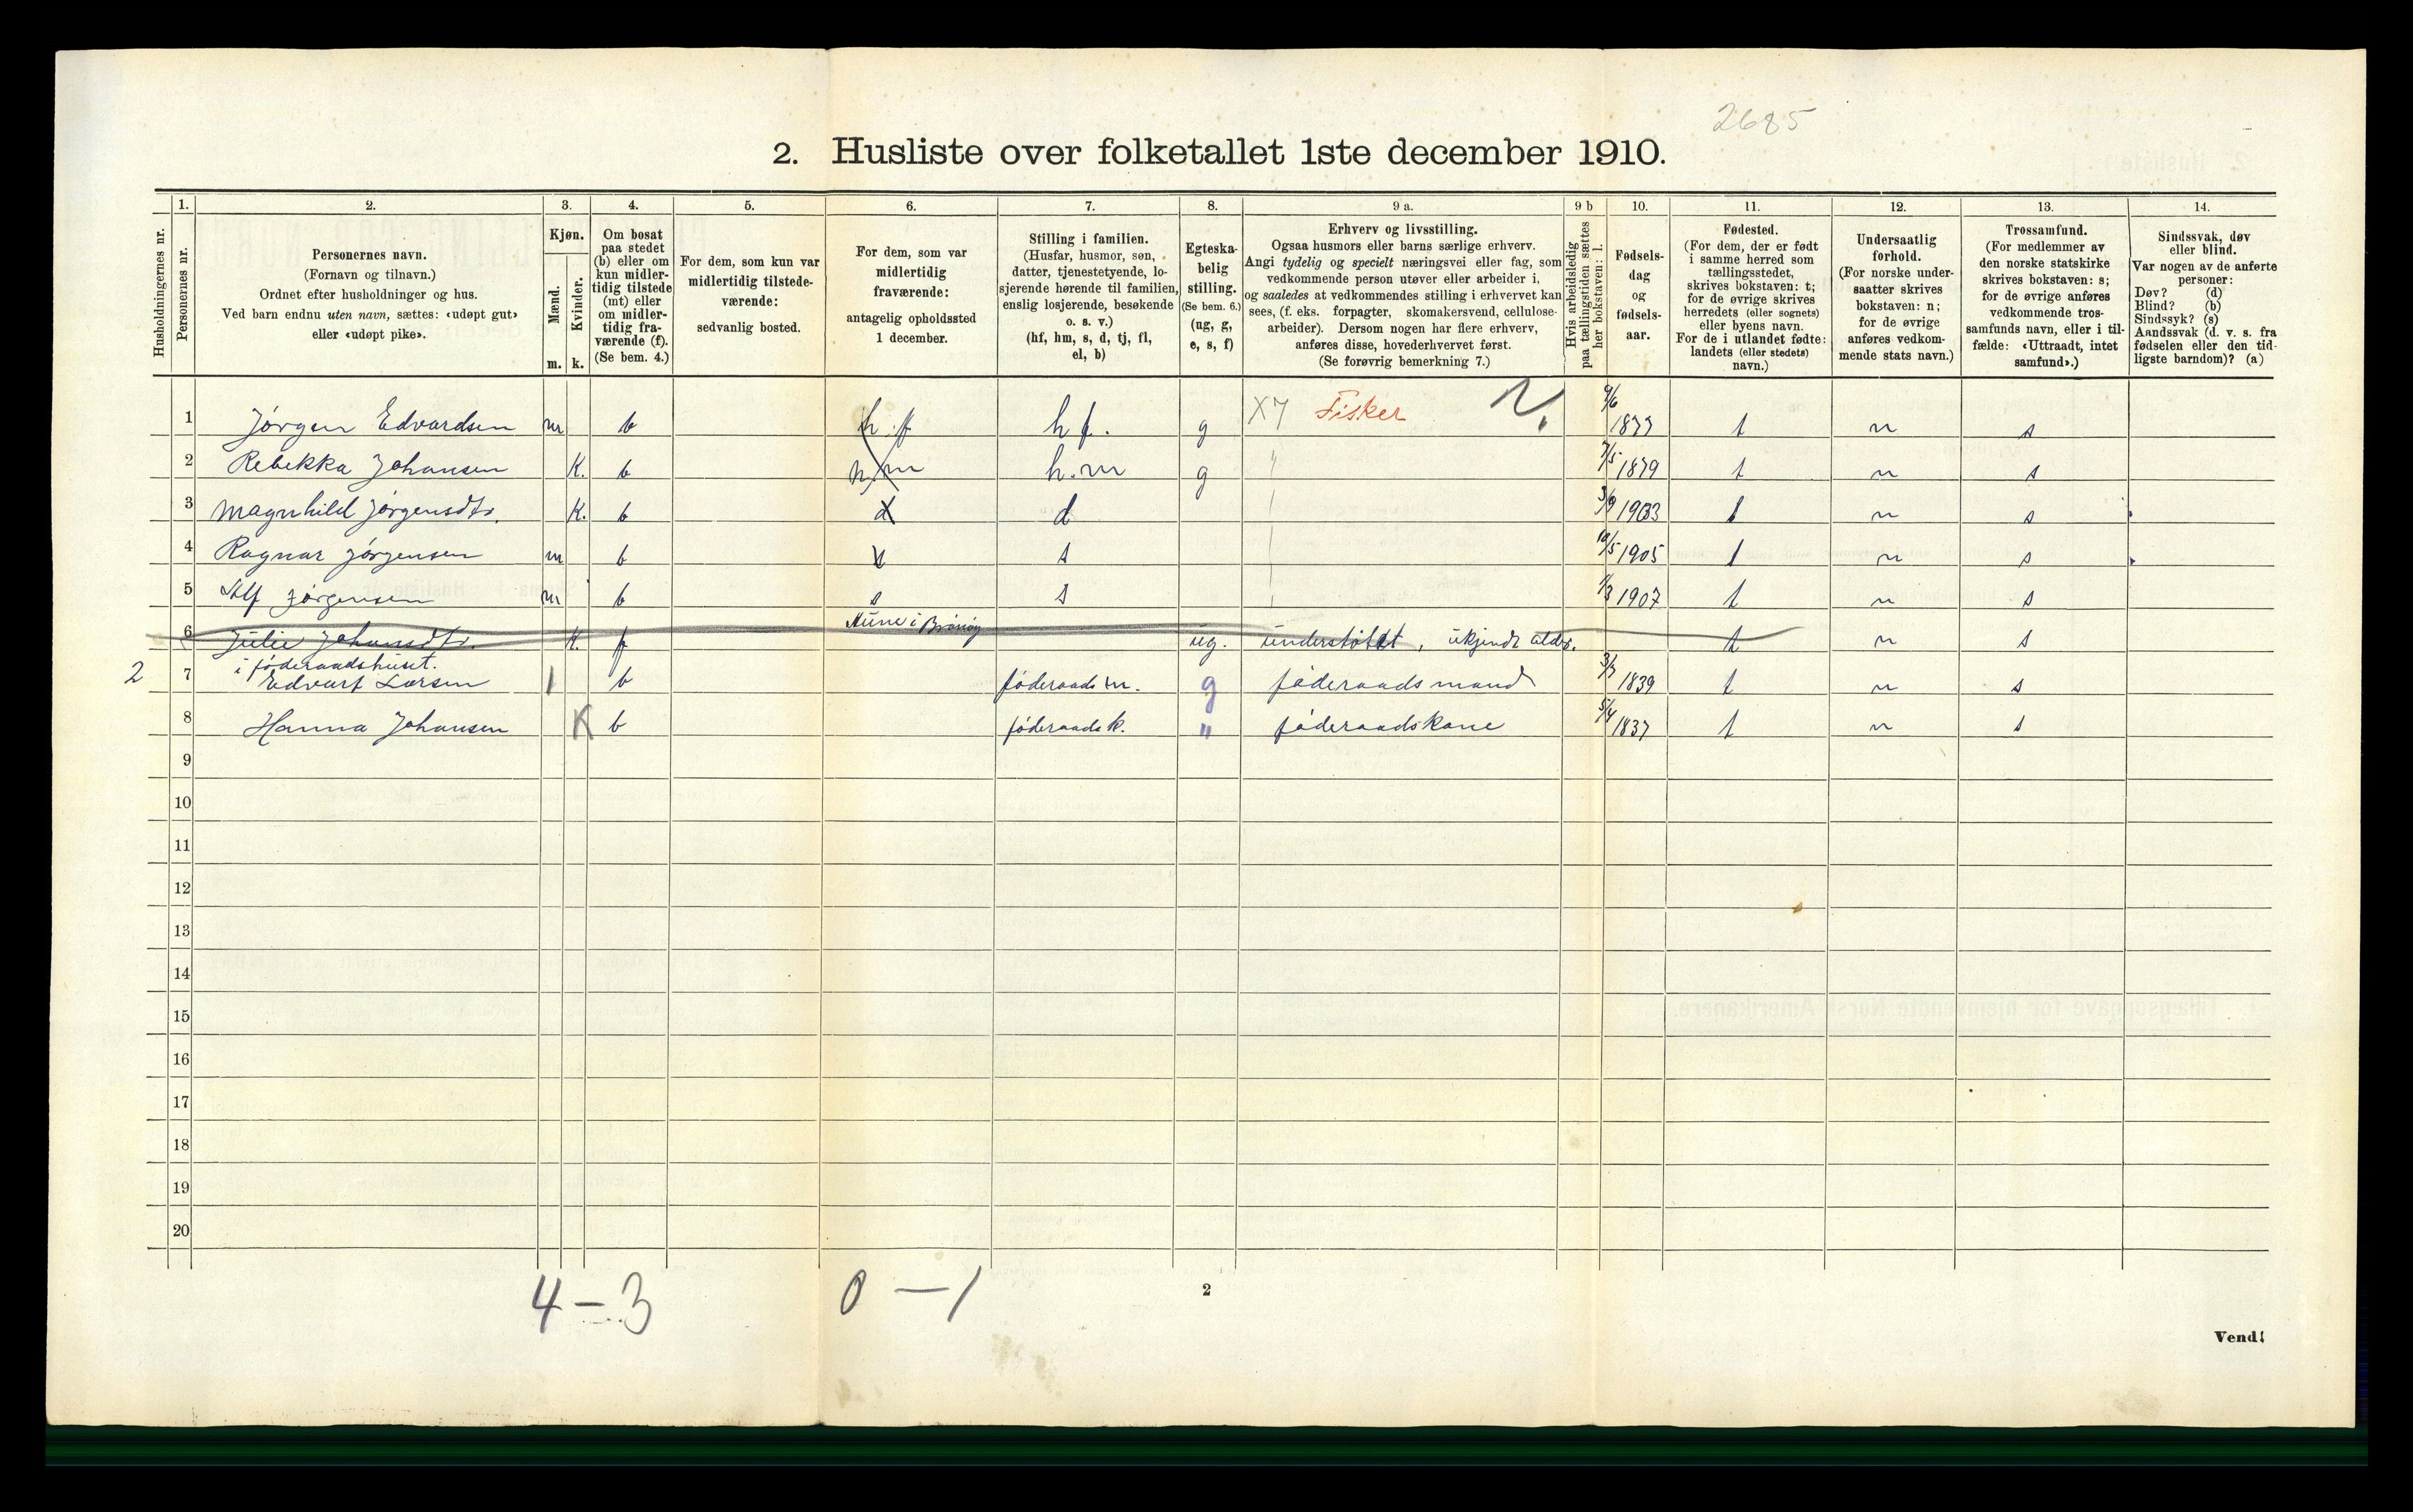 2685
2. Husliste over folketallet 1ste december 1910.
Husholdningernes nr.
1.
Personernes nr.
2.
Personernes navn.
(Fornavn og tilnavn.)
Ordnet efter husholdninger og hus.
Ved barn endnu uten navn, sættes: «udøpt gut»
eller «udøpt pike».
3.
Kjøn.
Mænd.
Kvinder.
m. k.
4.
Om bosat
paa stedet
(b) eller om
kun midler-
tidig tilstede
(mt) eller
om midler-
tidig fra-
værende (f).
(Se bem. 4.)
5.
For dem, som kun var
midlertidig tilstede-
værende:
sedvanlig bosted.
6.
For dem, som var
midlertidig
fraværende:
antagelig opholdssted
1 december.
7.
Stilling i familien.
(Husfar, husmor, søn,
datter, tjenestetyende, lo-
sjerende hørende til familien,
enslig losjerende, besøkende
o. s. v.)
(hf, hm, s, d, tj, fl,
el, b)
8.
Egteska-
belig
stilling.
(Se bem. 6.)
(ug, g,
e, s, f)
9 a.
Erhverv og livsstilling.
Ogsaa husmors eller barns særlige erhverv.
Angi tydelig og specielt næringsvei eller fag, som
vedkommende person utøver eller arbeider i,
og saaledes at vedkommendes stilling i erhvervet kan
sees, (f. eks. forpagter, skomakersvend, cellulose-
arbeider). Dersom nogen har flere erhverv,
anføres disse, hovederhvervet først.
(Se forøvrig bemerkning 7.)
9 b
Hvis arbeidsledig
paa tællingstiden sættes
her bokstaven: l.
10.
Fødsels-
dag
og
fødsels-
aar.
11.
Fødested.
(For dem, der er født
i samme herred som
tællingsstedet,
skrives bokstaven: t;
for de øvrige skrives
herredets (eller sognets)
eller byens navn.
For de i utlandet fødte:
landets (eller stedets)
navn.)
12.
Undersaatlig
forhold.
(For norske under-
saatter skrives
bokstaven: n;
for de øvrige
anføres vedkom-
mende stats navn.)
13.
Trossamfund.
(For medlemmer av
den norske statskirke
skrives bokstaven: s;
for de øvrige anføres
vedkommende tros-
samfunds navn, eller i til-
fælde: «Uttraadt, intet
samfund».)
14.
Sindssvak, døv
eller blind.
Var nogen av de anførte
personer:
Døv? (d)
Blind? (b)
Sindssyk? (s)
Aandssvak (d. v. s. fra
fødselen eller den tid-
ligste barndom)? (a)
1 Jørgen Edvardsen m b h.f h f. g X7 Fisker t n s
2 Rebekka Johansen K. b h.m h.m g " 7/5 1879 t n s
3 Magnhild Jørgensdtr. K. b d d 3/9 1903 t n s
4 Ragnar Jørgensen m b s s 10/5 1905 t n s
5 Alf Jørgensen m b s s 1/3 1907 t n s
6 Julie Johansdtr. K. f i Brønøy ug. understøttet, ukjendt alder. t n s
i føderaadshuset.
2 7 Edvart Larsen 1 b føderaadsm. g føderaadsmand 3/7 1839 t n s
8 Hanna Johansen K b føderaadsk. " føderaadskone 5/4 1837 t n s
9
10
11
12
13
14
15
16
17
18
19
20
4 – 3 0 – 1
2
Vend!